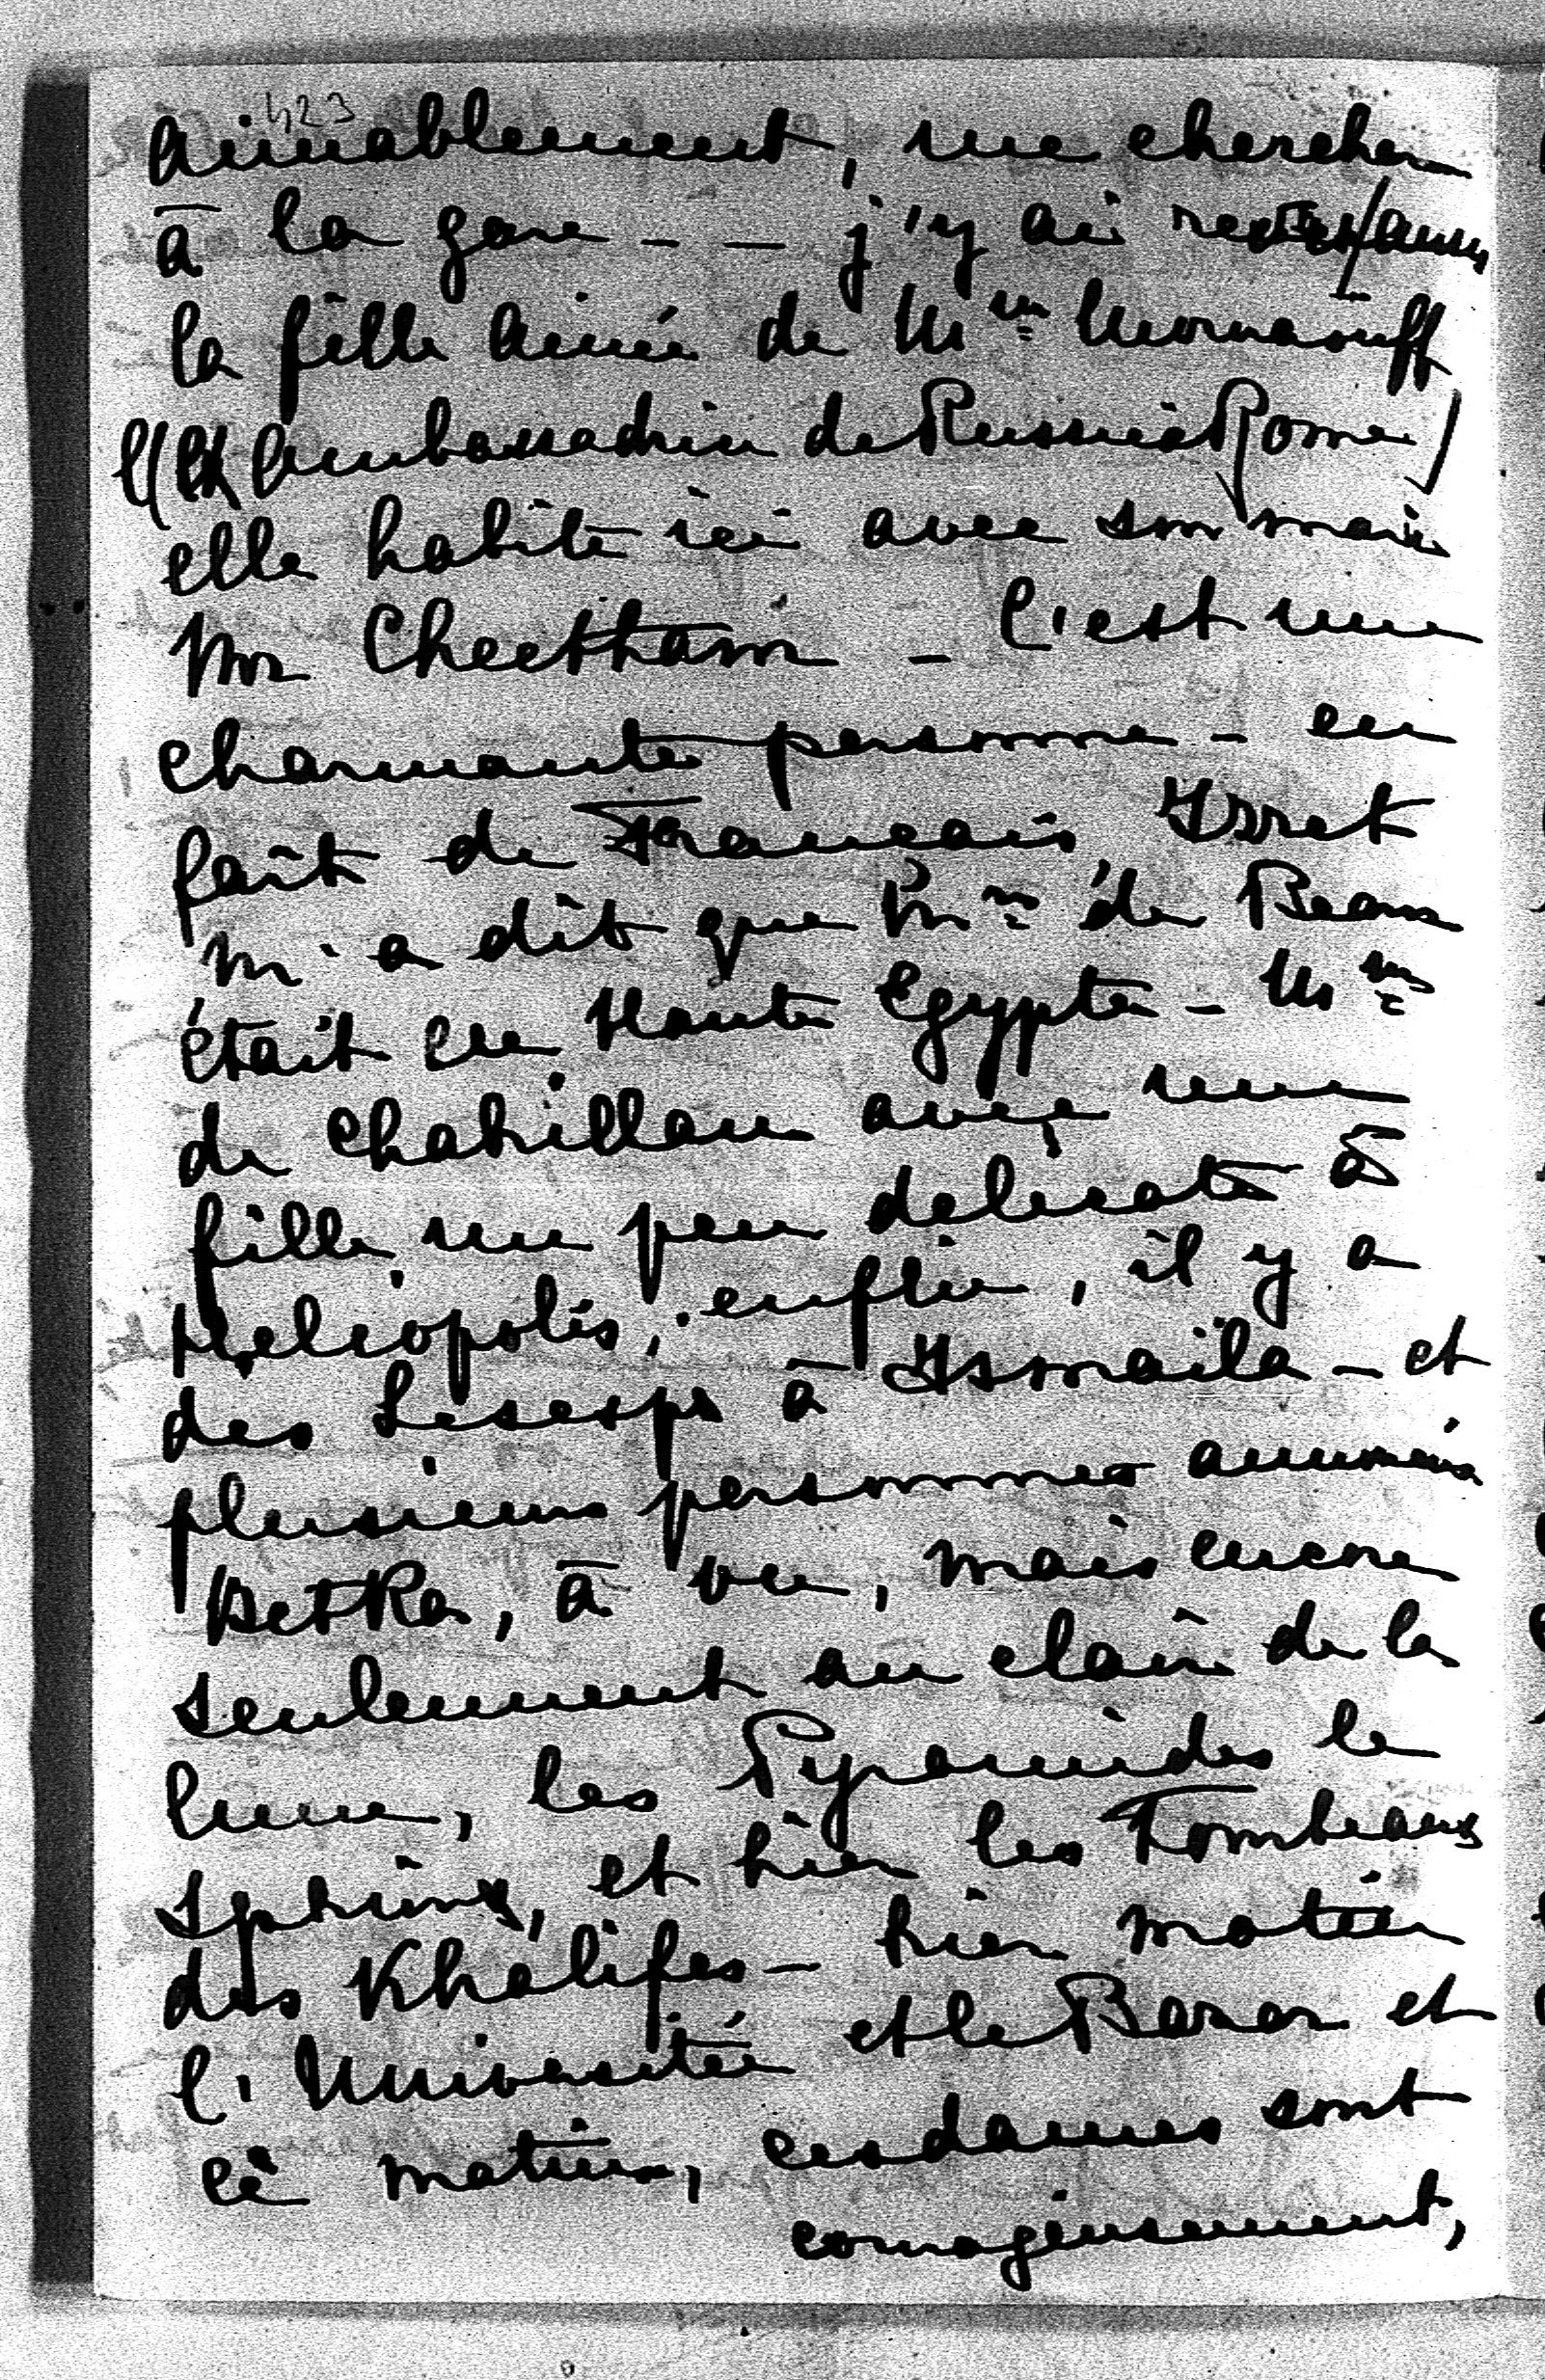 423
aimablement, me chercher
à la gare - - j'y ai
la fille ainée de Mme Mouraouff
l'(Ex Ambassadrice de Russie à Rome)
elle habite ici avec son mari
Mr Cheetham - C'est une
charmante personne - en
fait de Français, Izzet
m'a dit que Mme de Bearn
était en Haute Egypte - Mme
de Chabrillan avec une
fille un peu delicate à
Heliopolis, enfin, il y a
des Lesseps à Ismaïla - et
plusieurs personnes
Betka, à vu, mais encore
seulement au clair de la
lune, les Pyramides le
Sphinx, et hier les Tombeaux
des Khalifes - hier matin
l'Université et le Bazar et
cè matin, ces dames sont
courageusement,